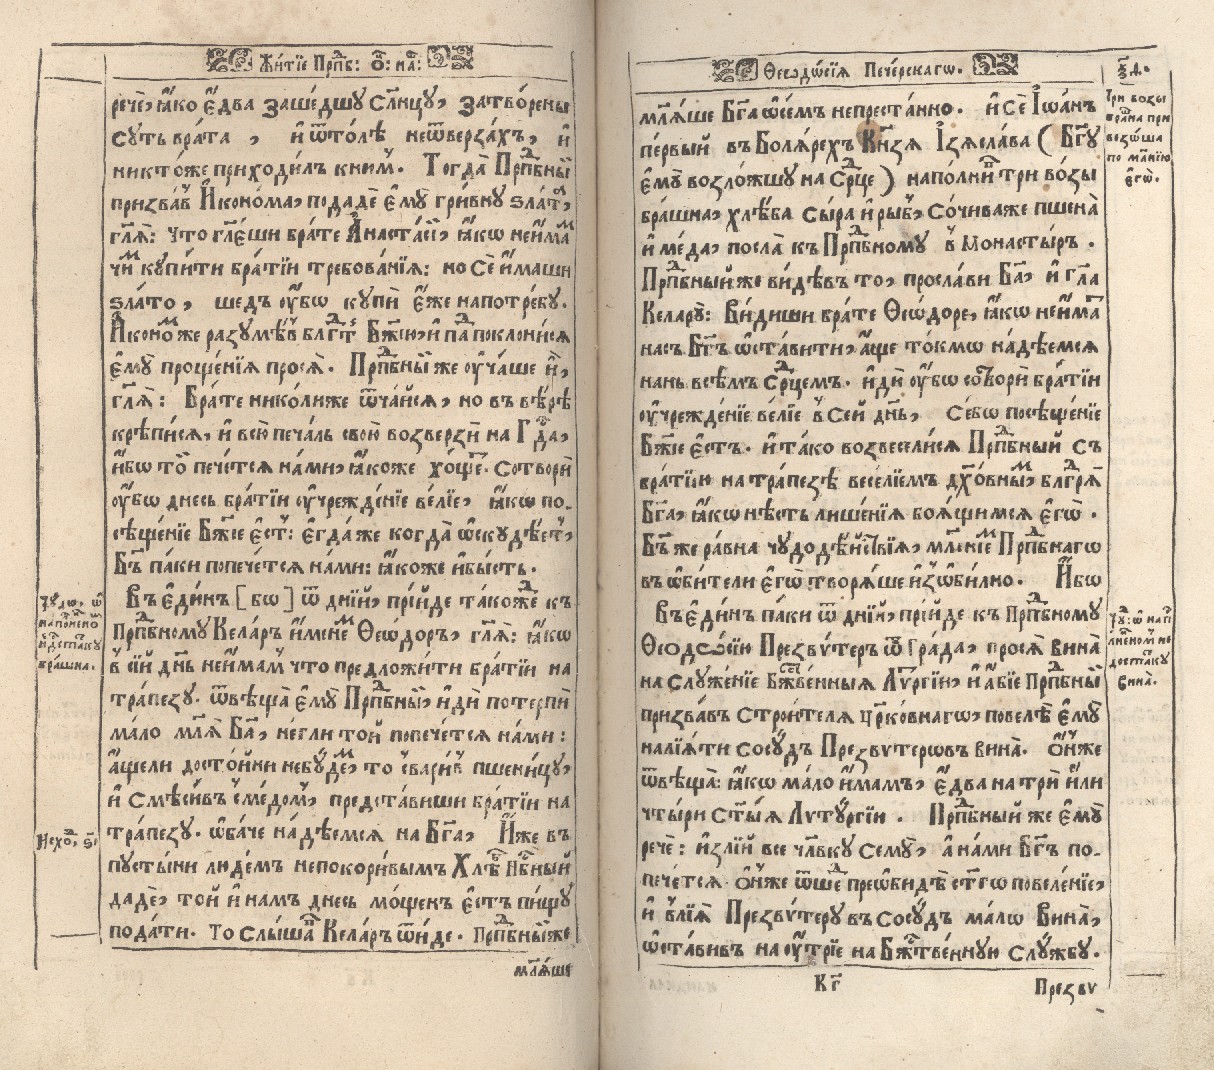 Житїе Прпⷣб: Ѻ҃: на́:
речѐ, ꙗ҆́кѡ є҆два зашедшꙋ Сл҃нцꙋ, затворены
сꙋть врата̀, и҆ ѿто́лѣ неѿверза́хъ, и҆
никто́же приходи́лъ кни́м. Тогда̀ Прпⷣбны́й
призва́в И҆коно́ма, подадѐ є҆мꙋ̀ гри́внꙋ ѕла́тꙋ,
гл҃ѧ̀: что гл҃еши бра́те А҆наста́сїй, ꙗ҆́кѡ неи҆́маⷨ
чи́ⷨ кꙋпи́ти бра́тїи тре́бованїѧ: но сѐ и҆́маши
ѕла́то, шедъ ᲂу҆́бѡ кꙋпѝ є҆́же напотре́бꙋ.
И҆коно́ⷨ же разꙋмѣ́в блгⷣть Бж҃їю, и҆ па́д поклони́сѧ
є҆мꙋ̀ проще́нїѧ просѧ̀. Прпⷣбны́й же ᲂу҆ча́ше и҆̀,
гл҃ѧ̀: Бра́те николи́же ѿча́йсѧ, но въ вѣ́рѣ
крѣпи́сѧ, и҆ всю̀ печа́ль свою̀ возверзѝ на Гдⷭ҇а,
и҆́бѡ то́й пече́тсѧ на́ми, ꙗ҆́коже хо́щеⷮ. Сотворѝ
ᲂу҆́бѡ днесь бра́тїи ᲂу҆чрежде́нїе ве́лїе, ꙗ҆́кѡ по-
сѣще́нїе Бж҃їе є҆́стⷽ: є҆гда́же когда̀ ѡ҆скꙋдѣ́етⷽ,
Бг҃ъ па́ки попече́тсѧ на́ми: ꙗ҆́коже и҆бы́сть.
Въ є҆ди́нъ [бѡ] ѿ дні́й, прі́йде та́коже къ
Прпⷣбномꙋ Кела́ръ и҆́менеⷨ Ѳео́дѡръ, гл҃ѧ̀: ꙗ҆́кѡ
в̾ сі́й дн҃ь неи҆́мамⷽ что предложи́ти бра́тїи на
тра́пезꙋ. ѿвѣща̀ є҆мꙋ̀ Прпⷣбны́й, и҆дѝ потерпѝ
ма́ло млѧ̀ Бг҃а, не́гли то́й попече́тсѧ на́ми:
а҆́щели досто́йни небꙋ́деⷨ, то свари́в пшени́цꙋ,
и҆ смѣси́въ с̾ме́домⷽ, предста́виши бра́тїи на
тра́пезꙋ. ѻ҆ба́че надѣ́емсѧ на Бг҃а, И҆́же въ
пꙋсты́ни лю́демъ непокори́вымъ Хлѣ́б Нбⷭ҇ный
дадѐ, то́й и҆ на́мъ днесь мо́щенъ є҆́стъ пи́щꙋ
пода́ти. То слы́шавⷽ Кела́ръ ѿи́де. Прпⷣбны́йже
млѧ́ше
Чꙋ́дѡ, ѡ҆
наполне́нїю
недоста́ткꙋ
бра́шна.
Исхо́д, ѕ҃і.
Ѳеѡдѡ́сїѧ Пече́рскагѡ.
ѯ҃д.
млѧ́ше Бг҃а ѡ҆се́мъ непреста́нно. и҆ сѐ І҆ѡа́нъ
пе́рвый въ Болѧ́рехъ Кнѧ́зѧ І҆зѧсла́ва (Бг҃ꙋ
є҆мꙋ̀ возло́жшꙋ на Срⷣце) напо́лнивⷽ три во́зы
бра́шна, хлѣ́ба сы́ра и҆ ры́бⷽ, сочи́важе пшена̀
и҆ ме́да, посла̀ къ Прпⷣбномꙋ в̾ монасты́ръ.
Прпⷣбный же ви́дѣвъ то, просла́ви Бг҃а, и҆ гл҃а
Келарꙋ̀: Ви́диши бра́те Ѳеѡ́доре, ꙗ҆́кѡ неи҆́мать
на́съ Бг҃ъ ѡ҆ста́вити, а҆́ще то́кмѡ надѣ́емсѧ
нань все́мъ Срⷣцемъ. и҆дѝ ᲂу҆́бѡ сотворѝ бра́тїи
ᲂу҆чрежде́нїе ве́лїе в̾ се́й дн҃ь, се́бѡ посѣще́нїе
Бж҃їе є҆́стъ. и҆ та́ко возвесели́сѧ Прпⷣбный съ
бра́тїю на тра́пезѣ весе́лїемъ дх҃о́внымⷽ, блгⷣрѧ̀
Бг҃а, ꙗ҆́кѡ нѣ́сть лише́нїѧ боѧ́щимсѧ є҆гѡ̀.
Бг҃ъ же ра́вна чꙋдодѣ́йствїѧ, мл҃е́нїеⷨ Прпⷣбнагѡ
въ ѡ҆би́тели є҆гѡ̀ творѧ́ше и҆зѡ҆би́лно. И҆́бѡ
Въ є҆ди́нъ па́ки ѿ дні́й, прі́йде къ Прпⷣбномꙋ
Ѳеѻдѡ́сїю Презвѵ́теръ ѿ Гра́да, просѧ̀ вина̀
на слꙋже́нїе Бжⷭ҇венныѧ Лѵргі́и, и҆ а҆́бїе Прпⷣбны́й
призва́въ строи́телѧ Цр҃ко́внагѡ, повелѣ̀ є҆мꙋ̀
налїѧ́ти сосꙋ́дъ Презвѵ́теровъ вина̀. Ѻ҆́нже
ѿвѣща̀: ꙗ҆́кѡ ма́ло и҆́мамъ, є҆́два на трѝ и҆́ли
чты́ри ст҃ы́ѧ Лѵтꙋргі́и. Прпⷣбный же є҆мꙋ̀
речѐ: и҆злі́й все чл҃вкꙋ семꙋ̀, а҆ на́ми Бг҃ъ по-
пече́тсѧ. Ѻ҆́нже ѿше́д преѡби́дѣ ст҃гѡ повеле́нїе,
и҆ в̾лїѧ̀ Презвѵ́терꙋ въ сосꙋ́дъ ма́лѡ вина̀,
ѡ҆ста́вивъ на ᲂу҆́трїе на Бжⷭ҇твеннꙋю слꙋ́жбꙋ.
Кг҃
Презвѵ
Три во́зы
бра́шна при
везо́ша
по мл҃нїю
є҆гѡ̀.
Чꙋⷣ: ѡ҆ нап
лне́номⷽ не
доста́ткꙋ
вина̀.